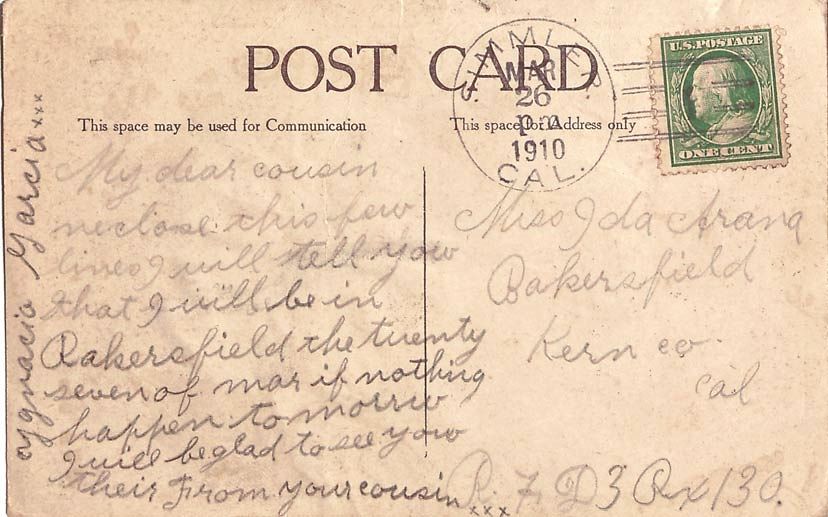 POST CARD
This space may be used for Communication
This space for Address only
MAR
26
1910
CAL.
U.S. POSTAGE
ONE CENT
My dear cousin
neclose this few
lines I will tell yow
that I will be in
Bakersfield the twenty
seven of mar if nothing
happen to morrw
I will be glad to see yow
their From your cousin xxx
ygnacio Garcia xxx
Miss Ida Arana
Bakersfield
Kern co.
Cal
R. F D 3 Bx 130.